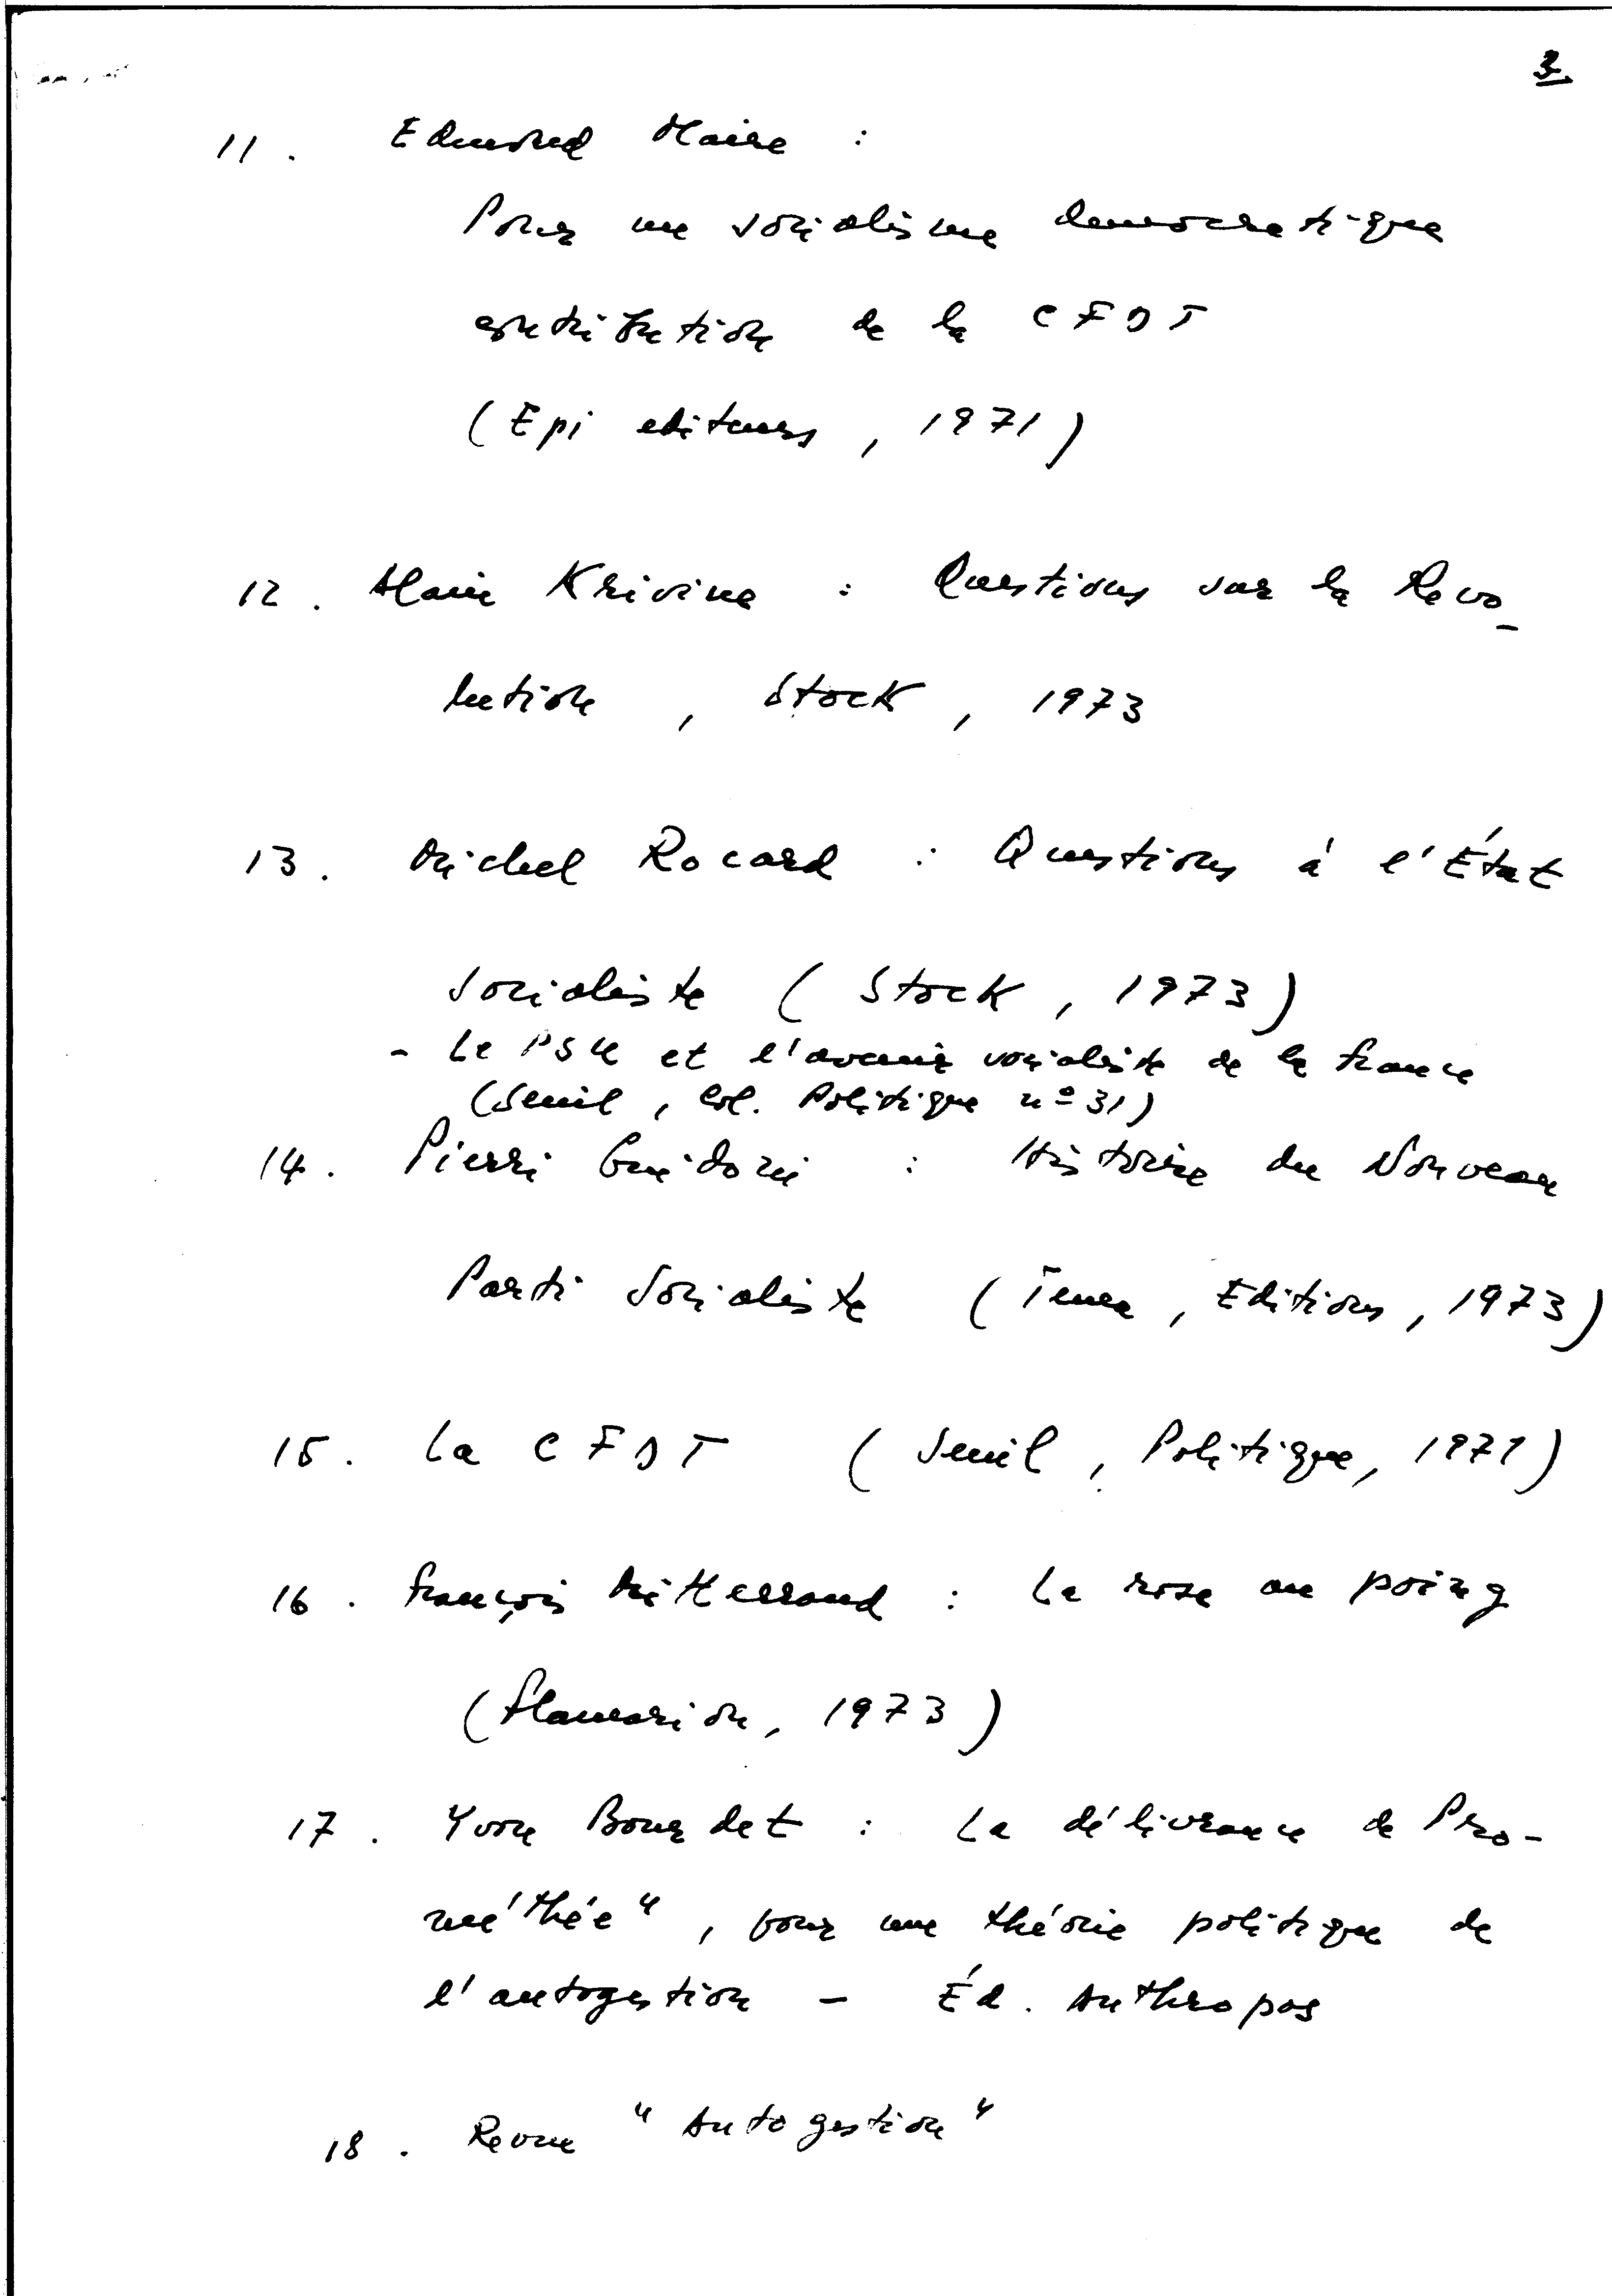 3.
11. Edmond Maire :
Pour un socialisme democratique
contribution de la CFDT
(Epi editeurs, 1971)
12. Alain Krivine : Questions sur la Revo-
lution, Stock, 1973
13. Michel Rocard : Questions á l'État
Socialiste (Stock, 1973)
- Le PSU et l'avenir socialiste de la France
(Seuil, Col. Politique nº 31)
14. Pierri Guidoni : Histoire du Nouveau
Parti Socialiste (Tema, Editions, 1973)
15. La CFDT (Seuil, Politique, 1971)
16. François Mitterrand : La rose au poing
(Flammarion, 1973)
17. Yvon Bourdet : La délivrance de Pro-
méthée", pour une théorie politique de
l'autogestion - Éd. Anthropos
18. Revue "Autogestion"